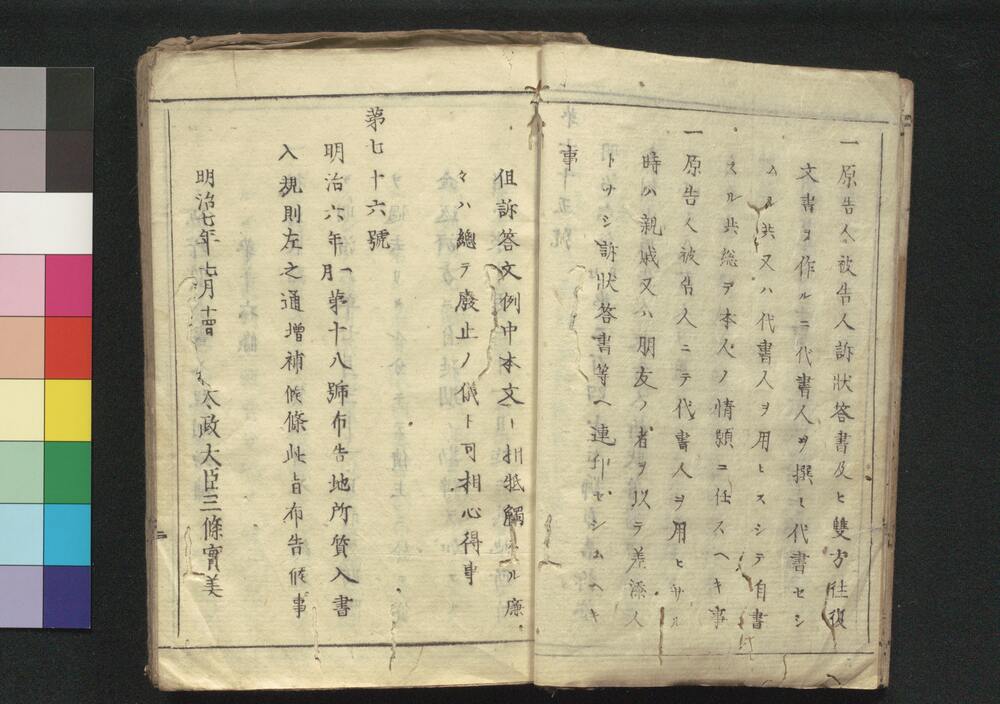 一原告人被告人訴状答書及ヒ雙方往復
文書ヲ作ルニ代書人ヲ撰ヒ代書セシ
ムル共又ハ代書人ヲ用ヒスシテ自書
スル共総テ本人ノ情願ニ任スヘキ事
一原告人被告人ニテ代書人ヲ用ヒサル
時ハ親戚又ハ朋友ノ者ヲ以テ差添人
トナシ訴状答書等ヘ連印セシムヘキ
事
但訴答文例中本文ト相牴觸スル廉
々ハ總テ廢止ノ儀ト可相心得事
第七十六號
明治六年一月第十八號布告地所質入書
入規則左之通増補候條此旨布告候事
明治七年七月十四日 太政大臣三條實美